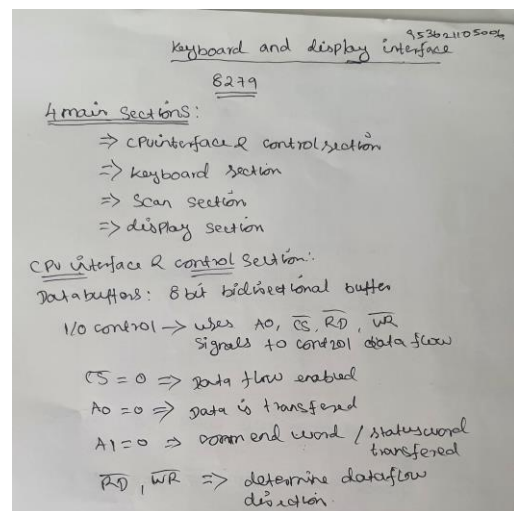 953621105004
Keyboard and display interface
8279
4 main sections:
⇒ CPU interface & control section
⇒ Keyboard section
⇒ Scan section
⇒ display section
CPU interface & control section:
Data buffers: 8 bit bidirectional buffer
I/O control → uses A0, C̅S̅, R̅D̅, W̅R̅
signals to control data flow
C̅S̅ = 0 ⇒ Data flow enabled
A0 = 0 ⇒ Data is transfered
A1 = 0 ⇒ command word / status word
transfered
R̅D̅, W̅R̅ ⇒ determine dataflow
direction.